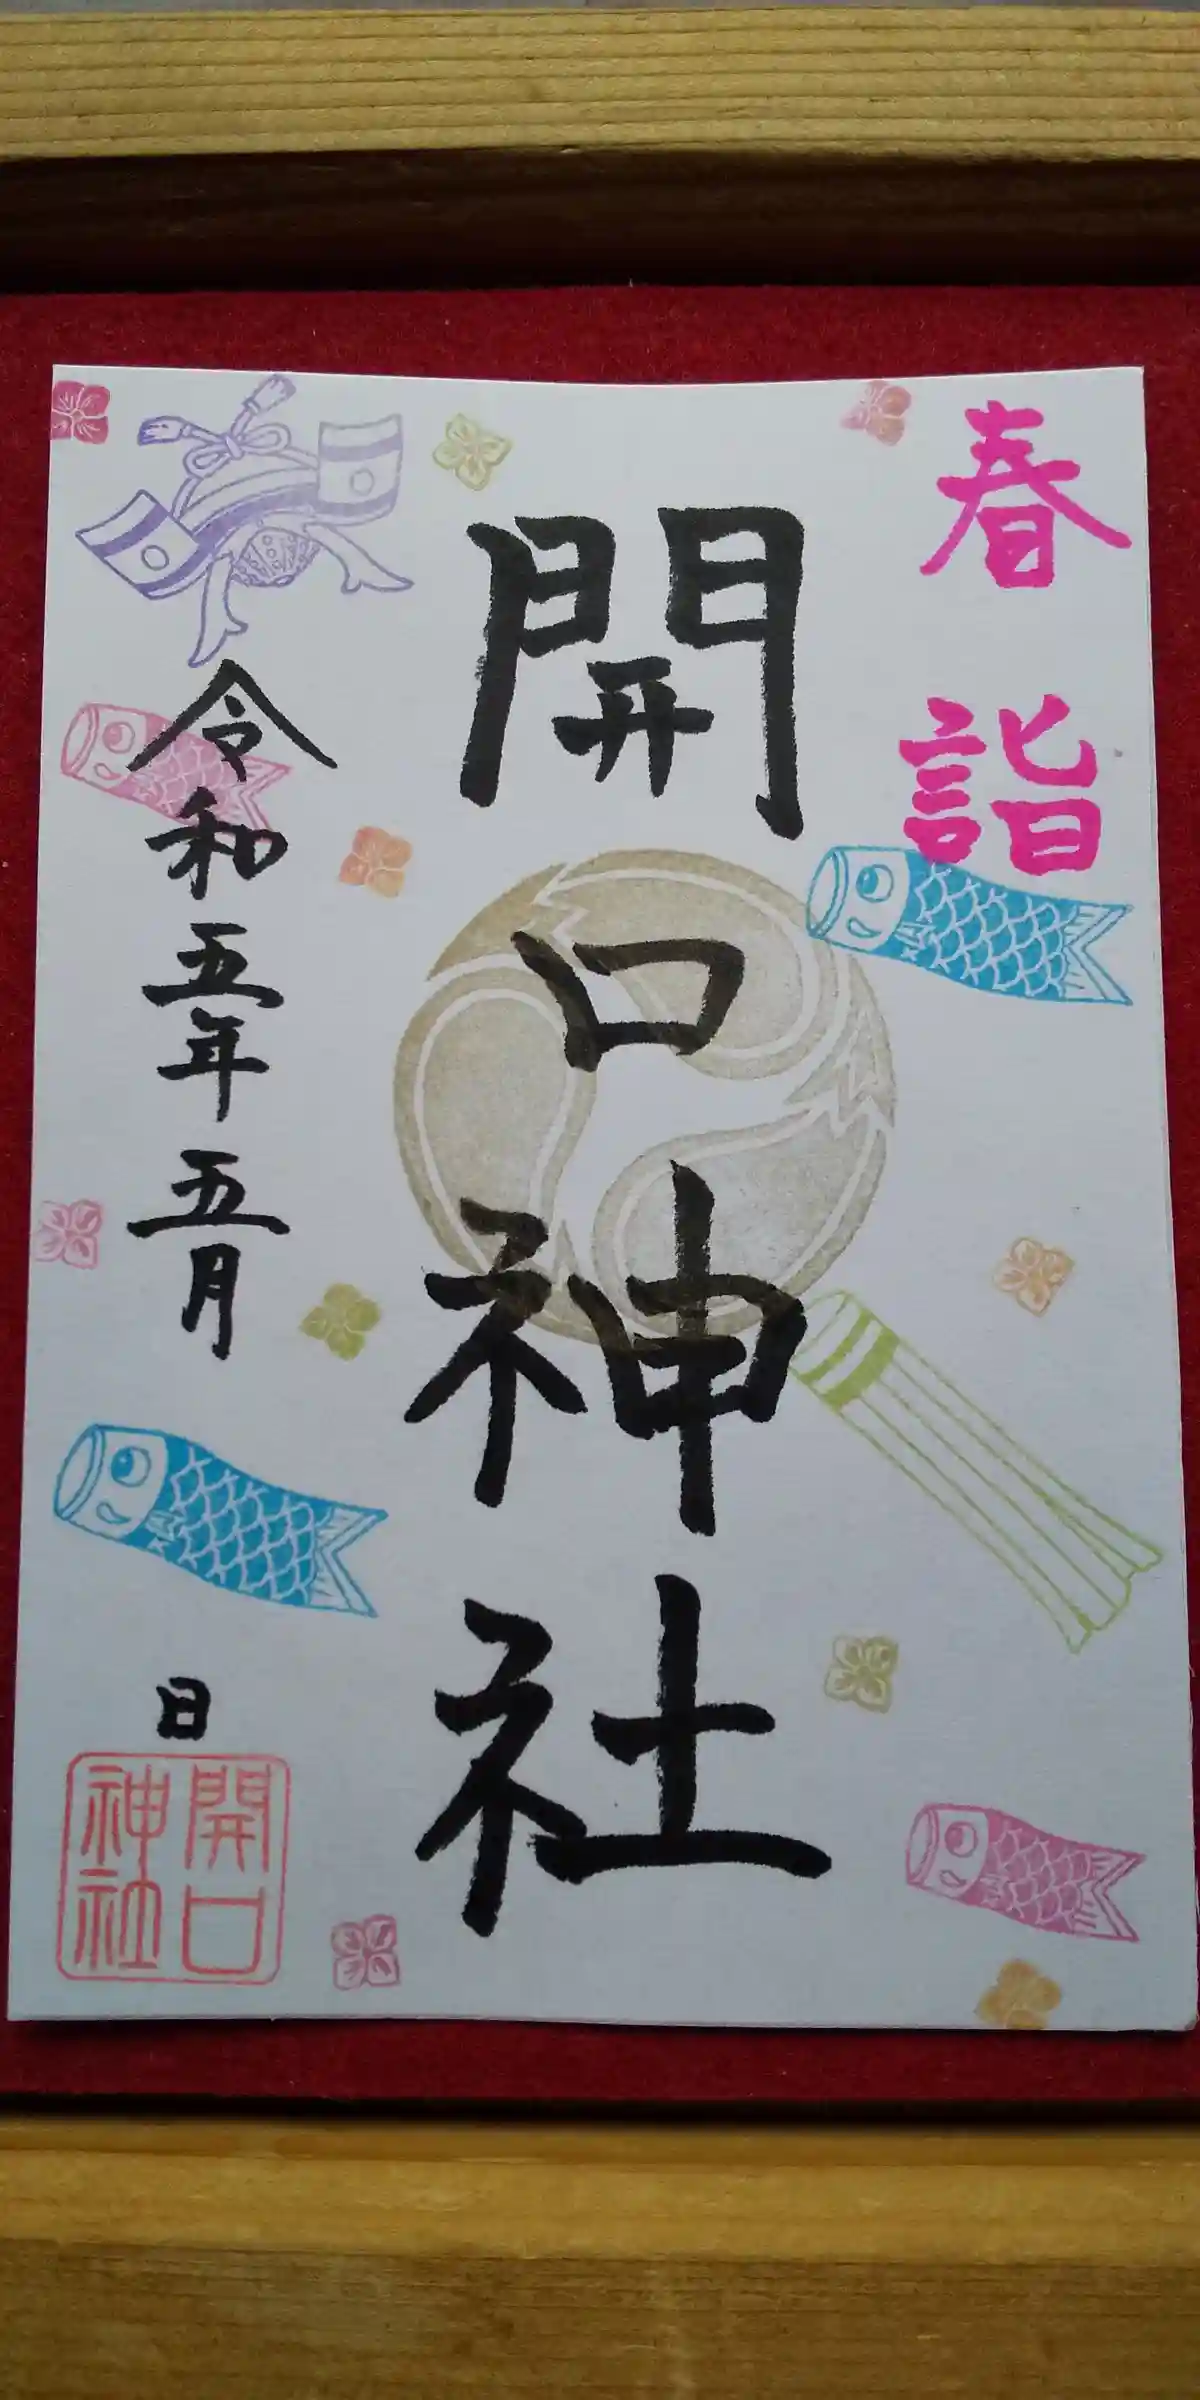 春詣
開口神社
令和五年五月
日
開口
神社